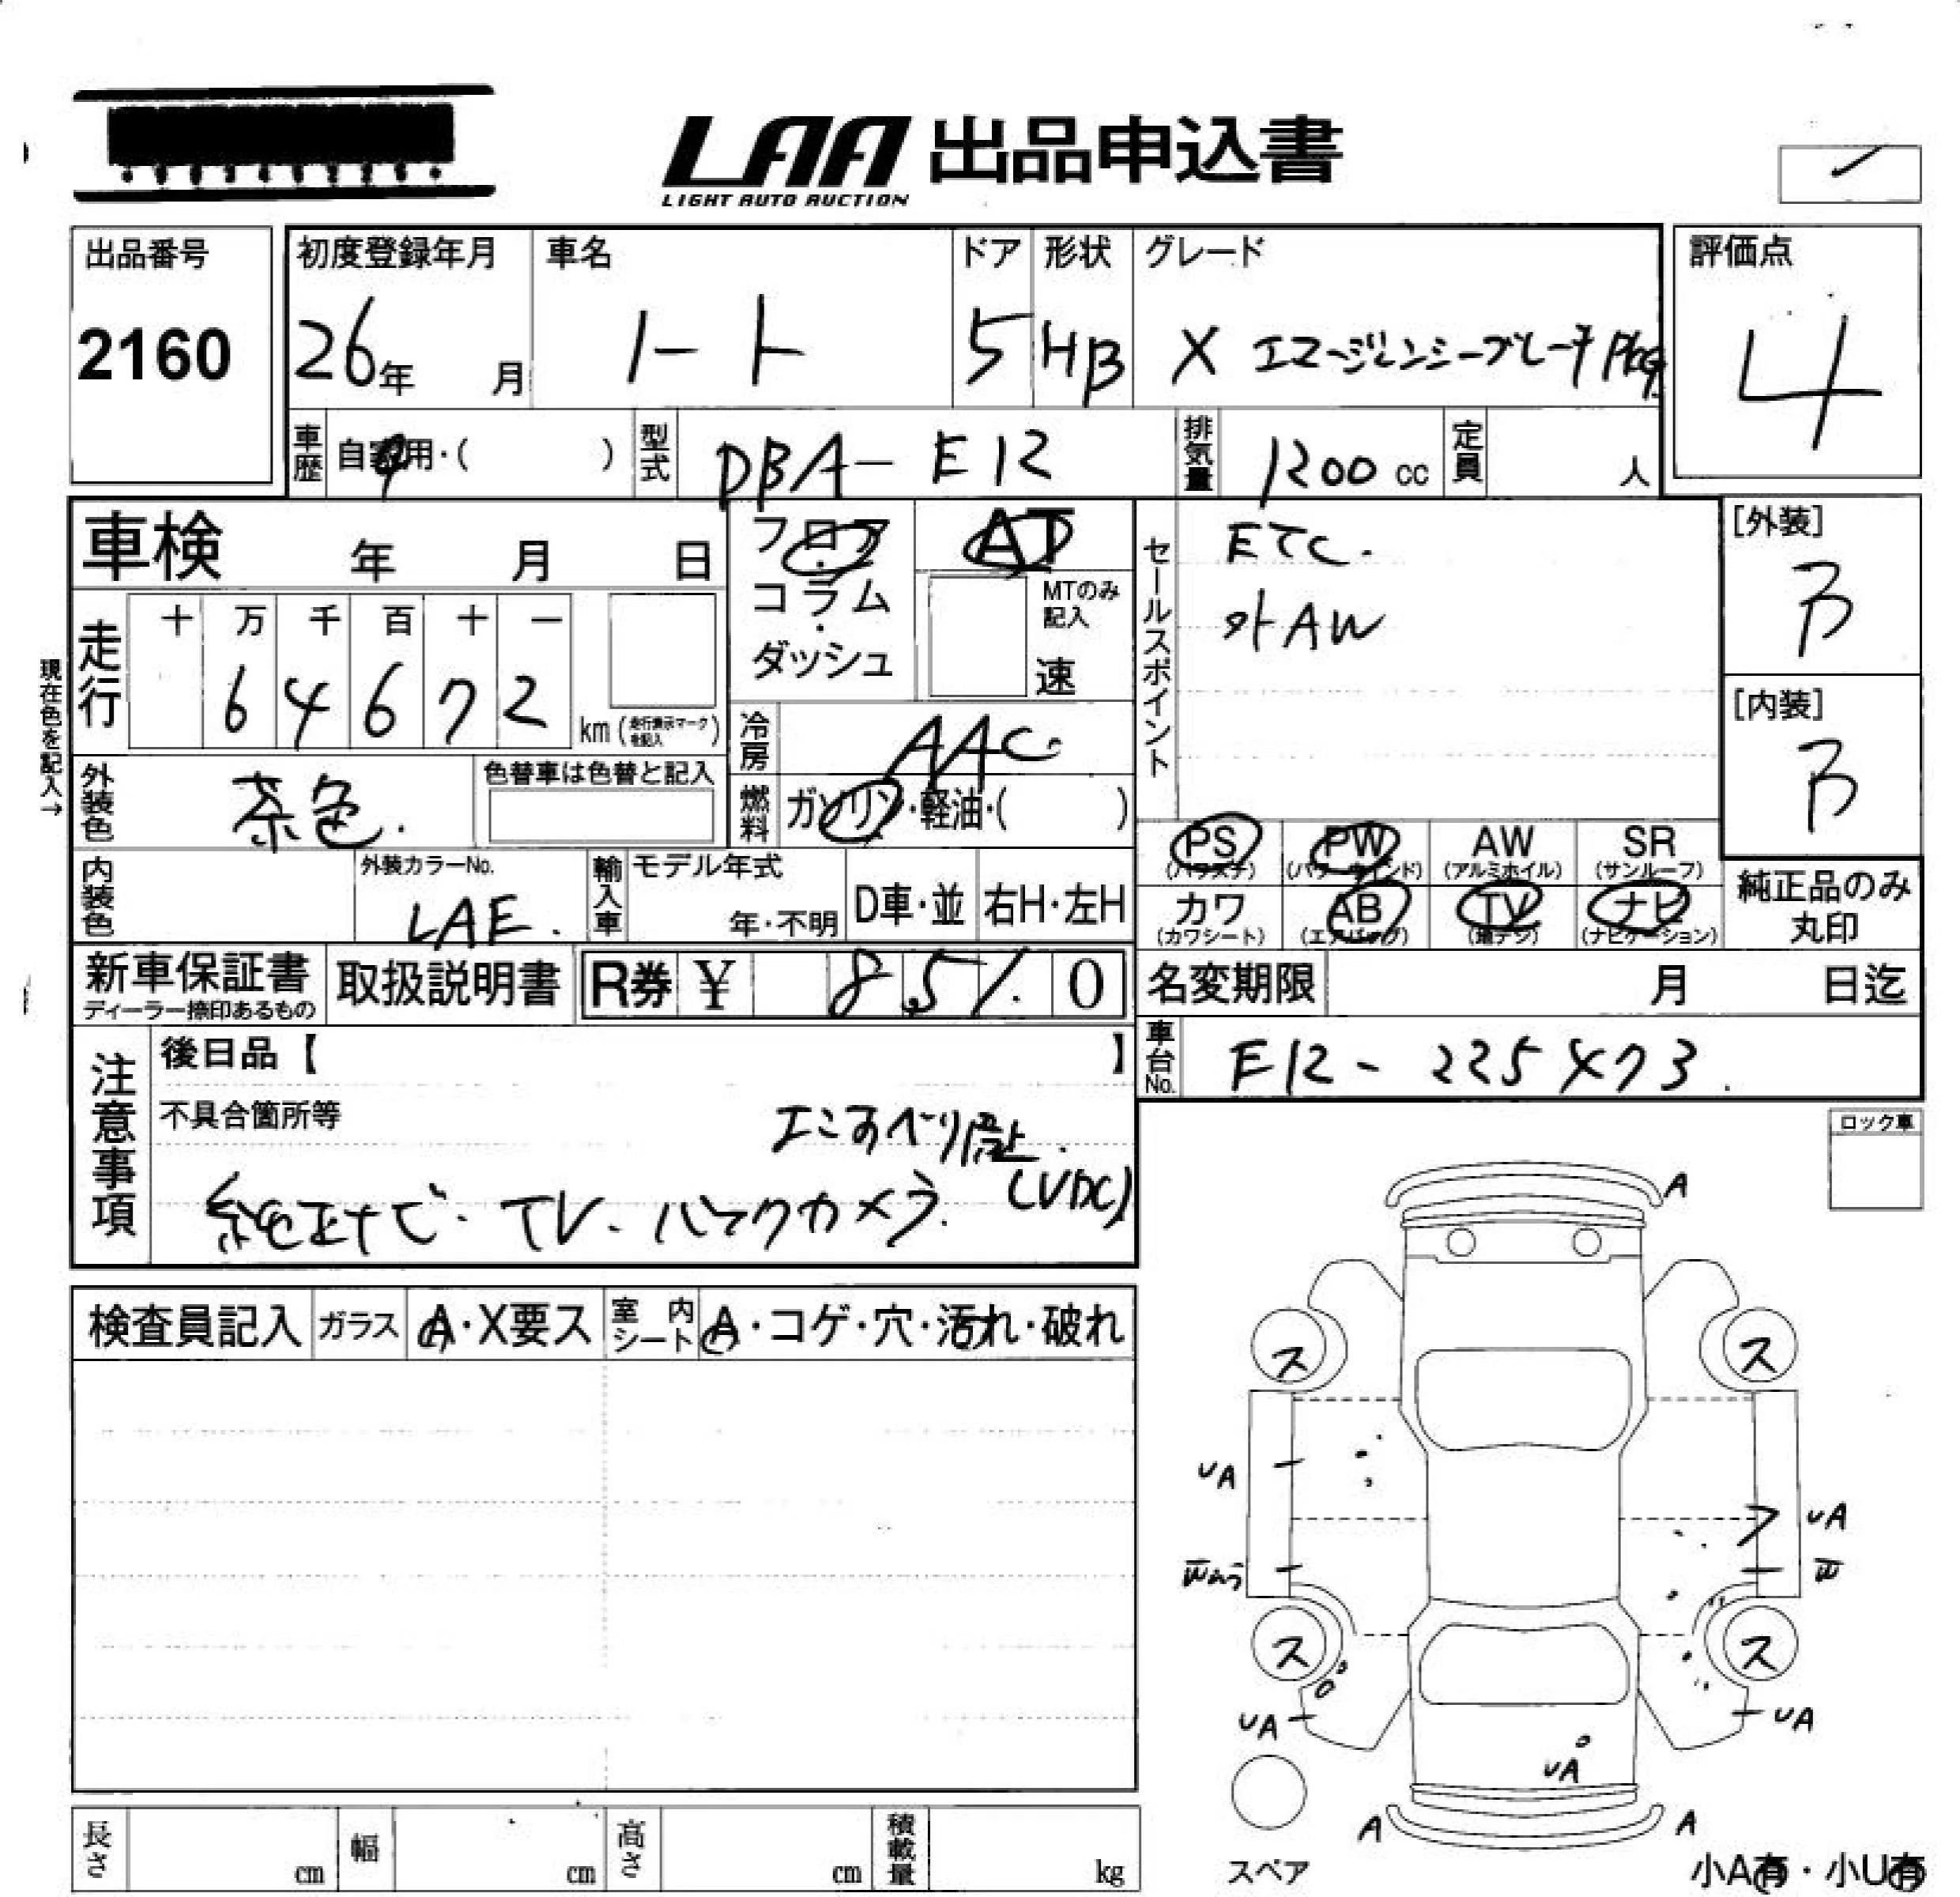 LAA 出品申込書
LIGHT AUTO AUCTION
出品番号
2160
初度登録年月
26年 月
車名
ノート
ドア
5
形状
HB
グレード
X エマージェンシーブレーキPkg
評価点
4
車歴 自家用・( )
型式 DBA-E12
排気量 1200 cc
定員 人
車検 年 月 日
フロア・コラム・ダッシュ
AT
MTのみ記入
速
セールスポイント
ETC.
外AW
[外装]
B
[内装]
B
現在色を記入→
走行
十 万 千 百 十 一
6 4 6 7 2 km (走行表示マークを記入)
冷房 AAC
燃料 ガソリン・軽油・( )
外装色 茶色.
色替車は色替と記入
内装色
外装カラーNo.
LAE.
輸入車
モデル年式
年・不明
D車・並
右H・左H
PS (パワステ)
PW (パワーウインド)
AW (アルミホイル)
SR (サンルーフ)
カワ (カワシート)
AB (エアバッグ)
TV (地デジ)
ナビ (ナビゲーション)
純正品のみ丸印
新車保証書
ディーラー捺印あるもの
取扱説明書
R券 ¥ 8,51 0
名変期限 月 日迄
車台No. E12-225473.
注意事項
後日品【 】
不具合箇所等
ヨコすべり防止.
(VDC)
純正ナビ・TV・バックカメラ.
ロック車
検査員記入
ガラス A・X要ス
室内シート A・コゲ・穴・汚れ・破れ
A
ス ス
UA
UA
ス ス
UA
UA
UA
A A
スペア
小A有・小U有
長さ cm
幅 cm
高さ cm
積載量 kg